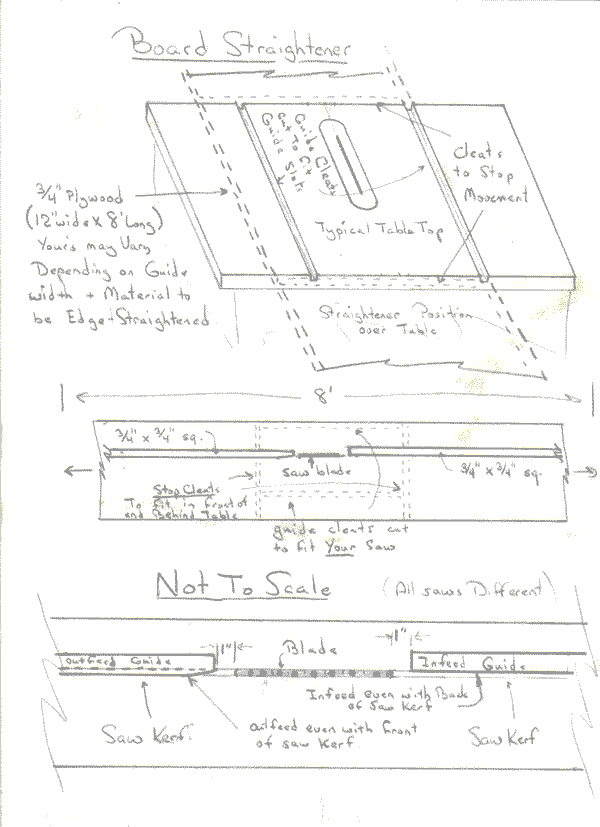 Board Straightener
Guide Cleats
Cut To Fit
Guide Slots
Cleats
to Stop
Movement
3/4" Plywood
(12" wide X 8' Long)
Your's may Vary
Depending on Guide
width + Material to
be Edge-Straightened
Typical Table Top
Straightener Position
over Table
8'
3/4" x 3/4" sq.
saw blade
3/4" x 3/4" sq.
Stop Cleats
To Fit in Front of
and Behind Table
guide cleats cut
to fit Your Saw
Not To Scale
(All saws Different)
1"
Blade
1"
Outfeed Guide
Infeed Guide
Infeed even with Back
of Saw Kerf
Saw Kerf
Outfeed even with Front
of saw Kerf
Saw Kerf